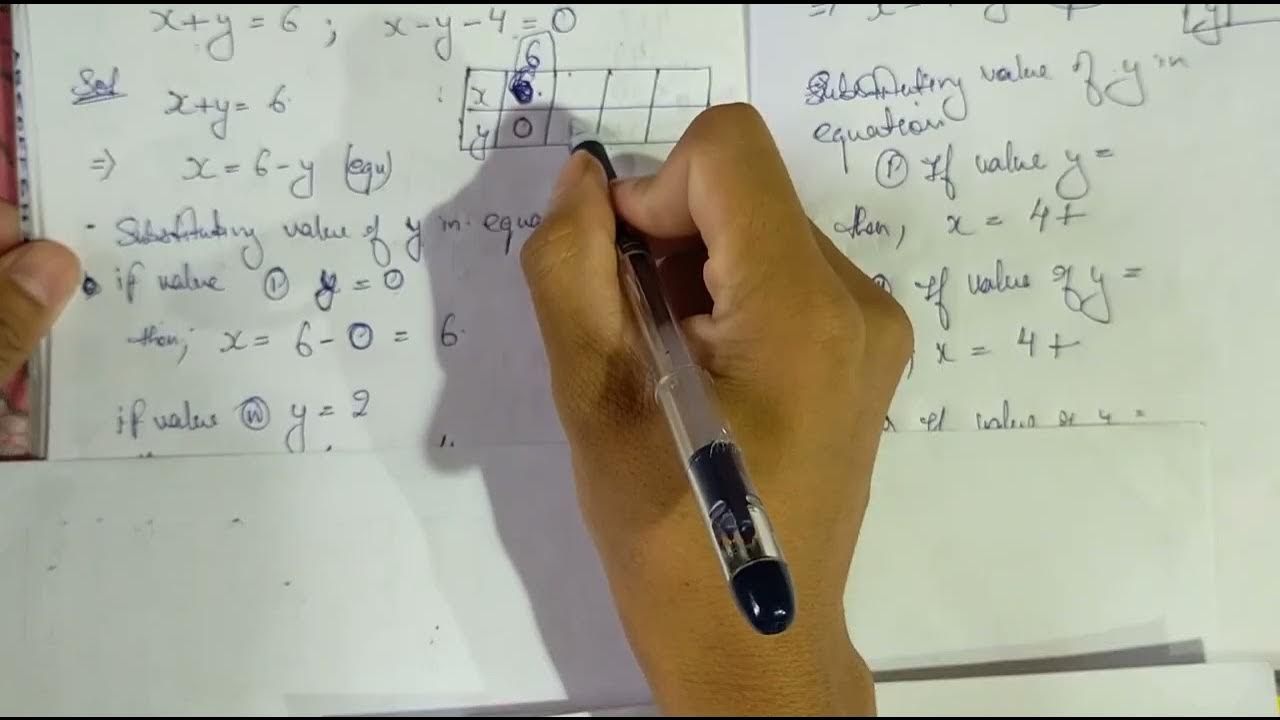 x+y = 6 ; x-y-4 = 0
Sol
x+y = 6
6
x 6
y 0
=) x = 6-y (equ)
Substituting value of y in equa
if value (i) y = 0
then; x = 6 - 0 = 6
if value (ii) y = 2
=) x =
y
Substituting value of y in
equation
(i) If value y =
then, x = 4+
If value of y =
; x = 4+
If value of y =